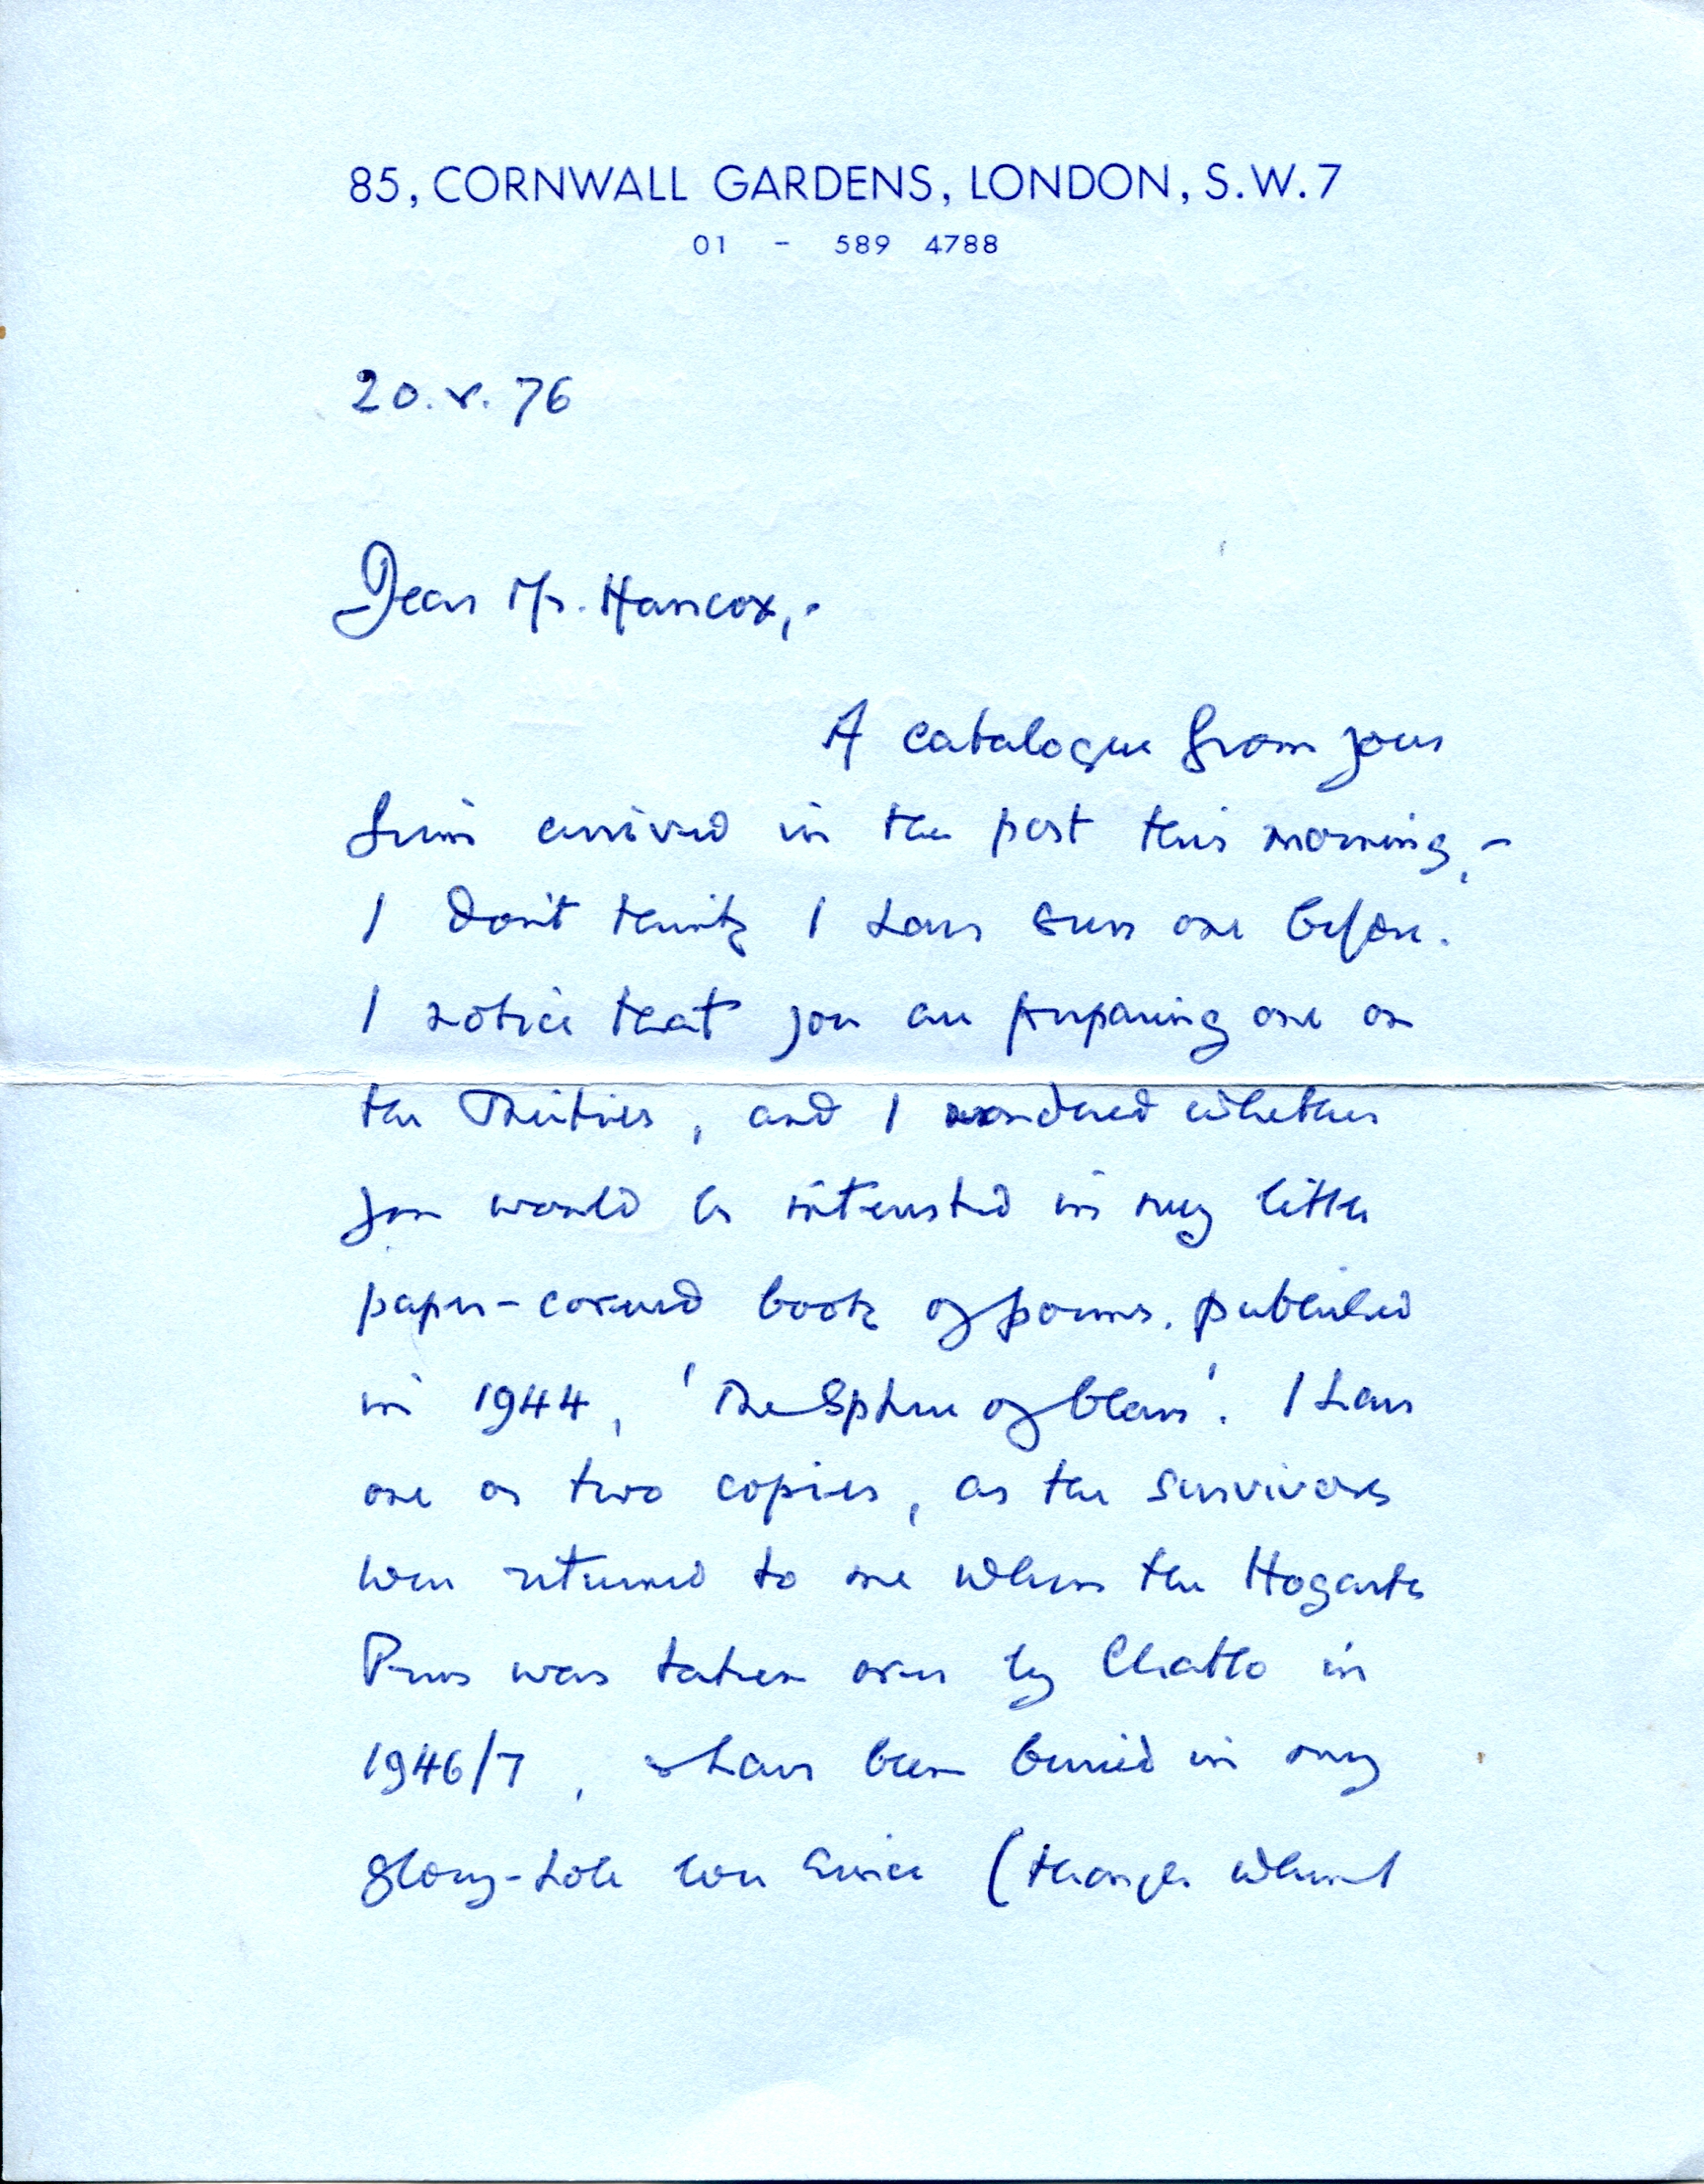 85, CORNWALL GARDENS, LONDON, S.W.7
01 - 589 4788
20.v.76
Dear Mr. Hancox,-
A catalogue from your
firm arrived in the post this morning,-
I don't think I have seen one before.
I notice that you are preparing one on
the Thirties, and I wondered whether
you would be interested in my little
paper-covered book of poems, published
in 1944, 'The Sphere of Glass'. I have
one or two copies, as the survivors
were returned to me when the Hogarth
Press was taken over by Chatto in
1946/7, & have been buried in my
glory-hole ever since (though when I